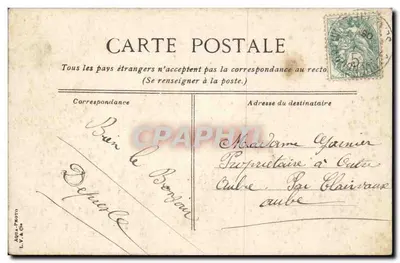 CARTE POSTALE
Tous les pays étrangers n'acceptent pas la correspondance au recto
(Se renseigner à la poste.)
Correspondance
Adresse du destinataire
Bien le Bonjour
Madame
Propriétaire à Outre
Aube. Par Clairvaux
aube
CPARAMA
L. V. & Cie